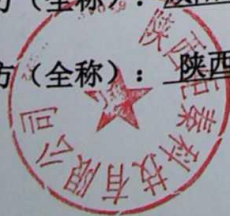 方（全称）：
方（全称）：陕西
陕西巨泰科技有限公司